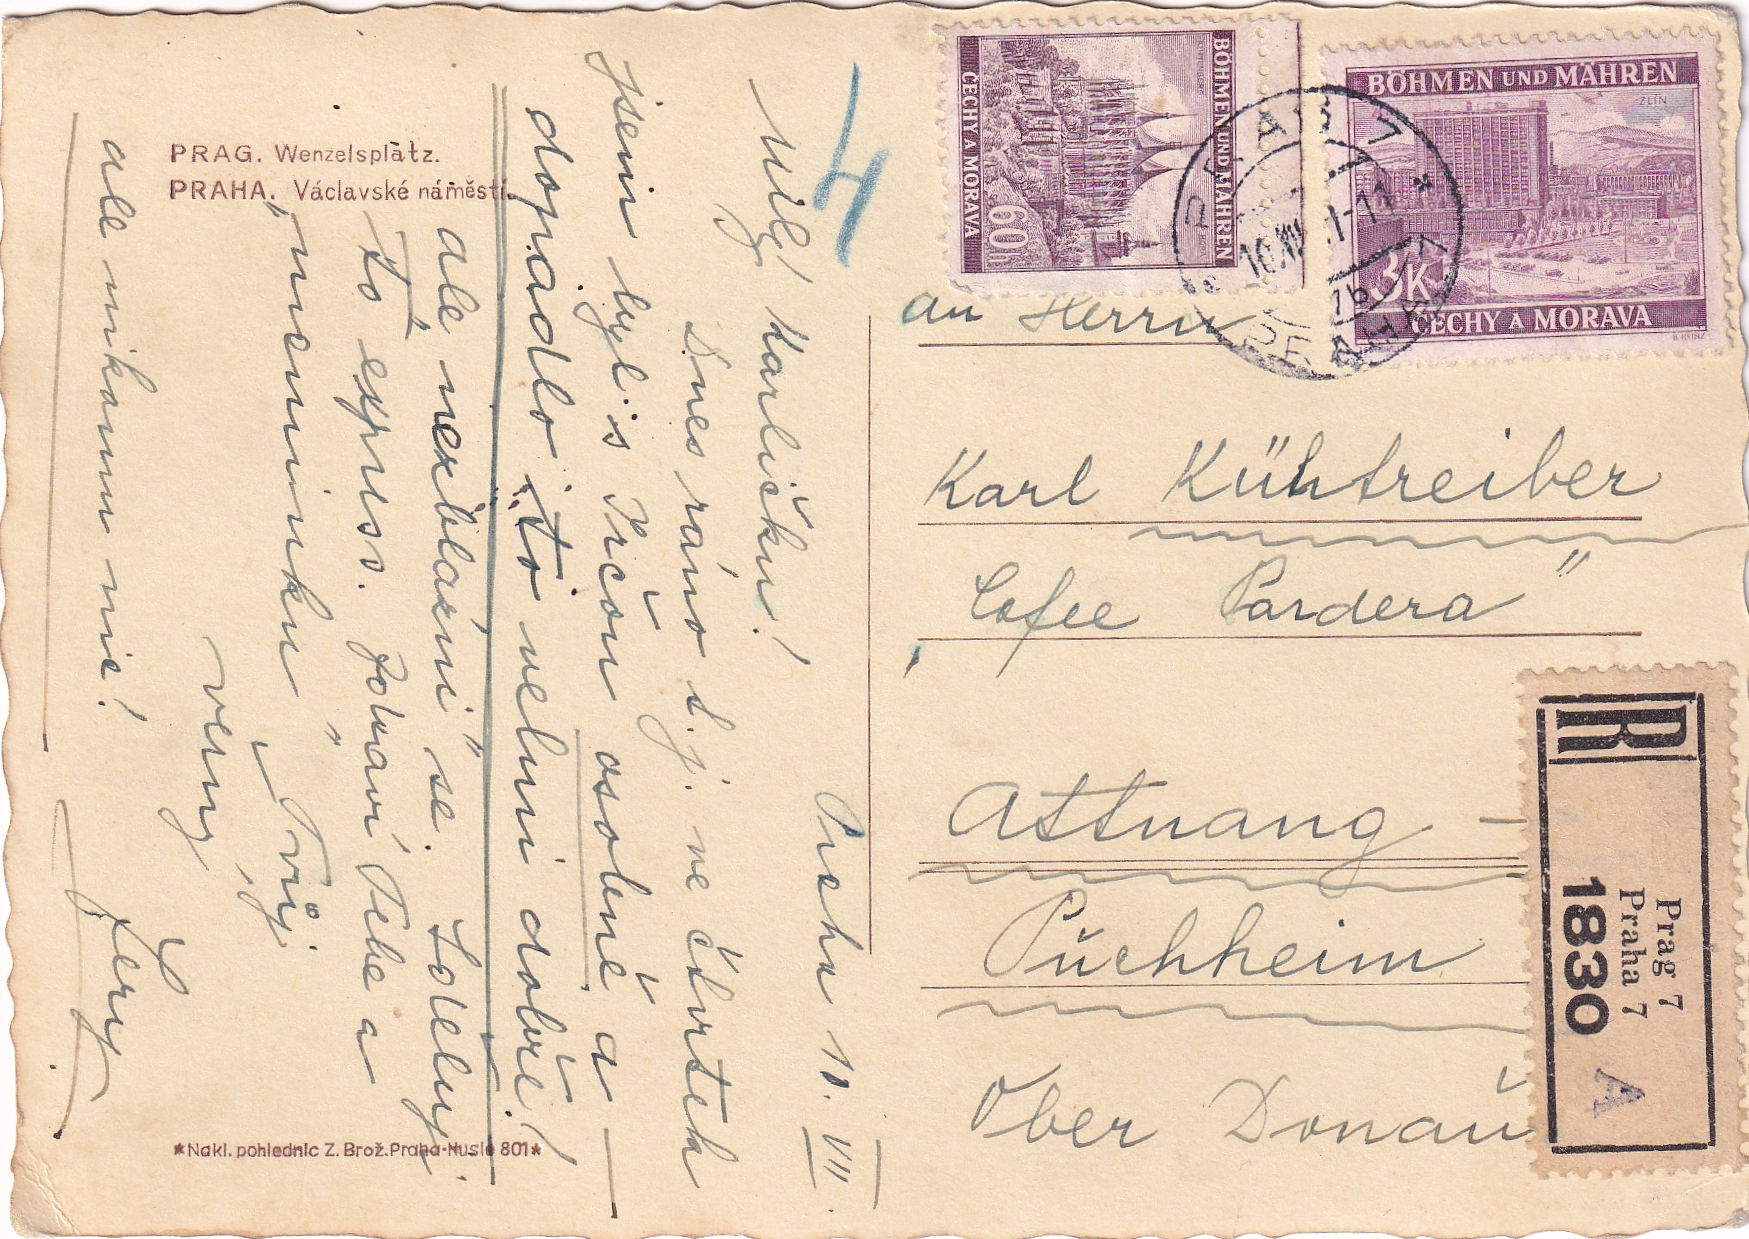 PRAG. Wenzelsplatz.
PRAHA. Václavské náměstí.
Praha 10. VII
Milý Karličku!
Dnes ráno t.j. ve čtvrtek
jsem byl s Vrčou osobeně a
dopadlo to velmi dobře!
ale nezblázni se. Sděluji
to expres. Zotaví Tebe a
"meminku" Tvůj
věrný Jery
ale nikomu nic!
*Nakl. pohlednic Z. Brož. Praha-Nusle 801*
4
BÖHMEN UND MÄHREN
ČECHY A MORAVA
60h
BÖHMEN UND MÄHREN
ZLÍN
3K
ČECHY A MORAVA
PRAG 7
PRAHA 7
an Herrn
Karl Kühtreiber
Cafee Pardera"
Attnang -
Puchheim
Ober Donau
R
Prag 7
Praha 7
1830
A